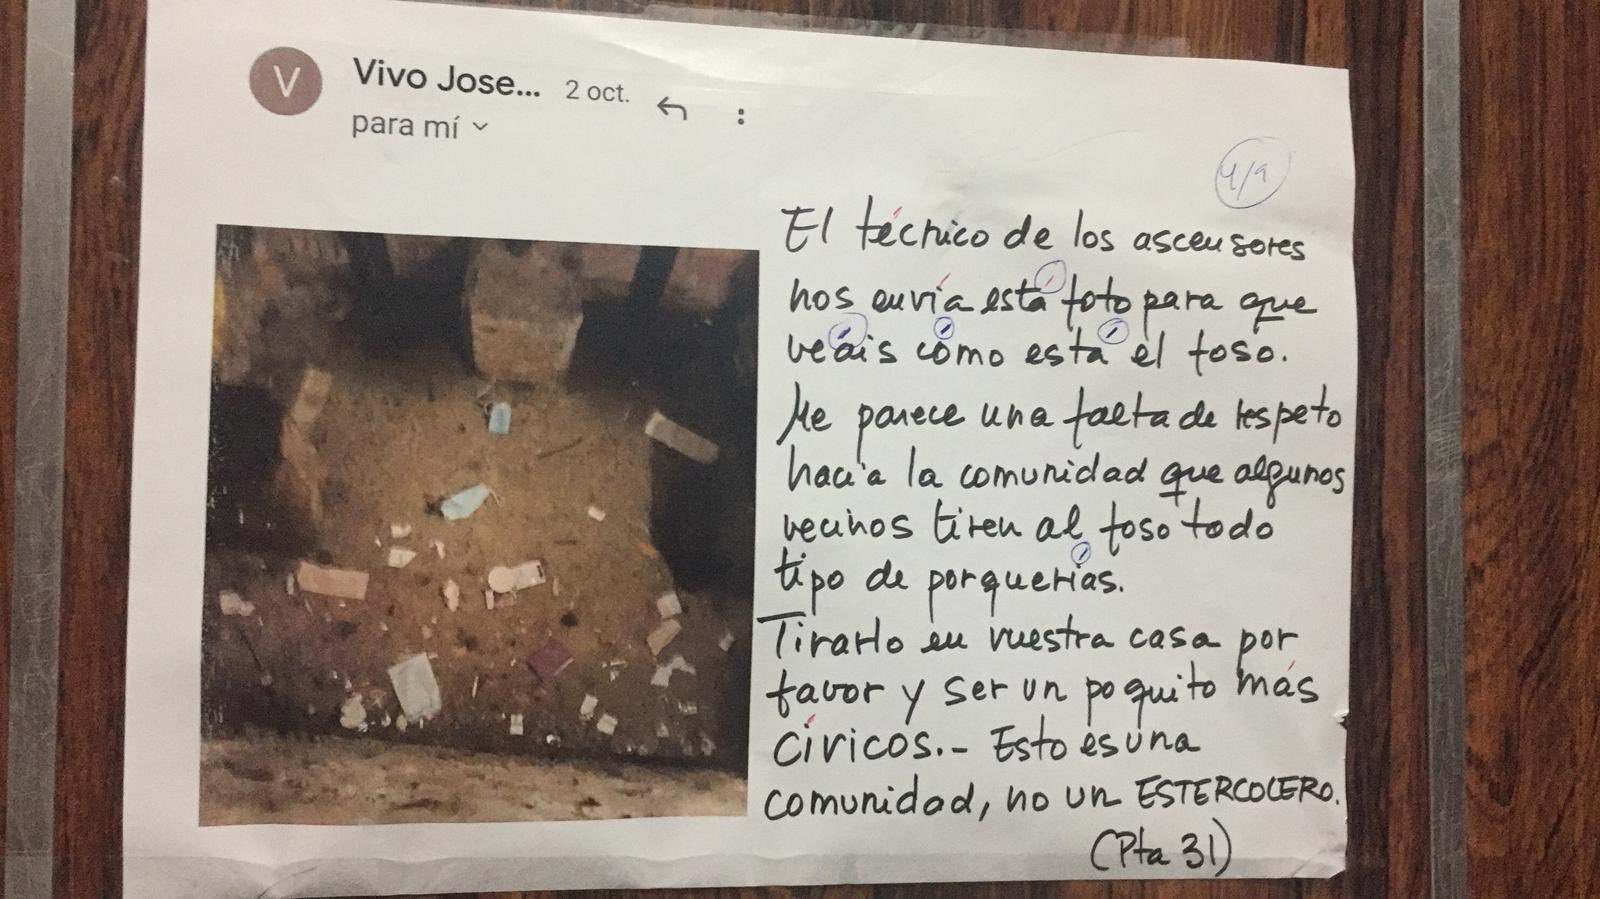 V
Vivo Jose... 2 oct.
para mí
4/9
El técnico de los ascensores
nos envía está foto para que
veáis cómo está el foso.
Me parece una falta de respeto
hacia la comunidad que algunos
vecinos tiren al foso todo
tipo de porquerías.
Tirarlo en vuestra casa por
favor y ser un poquito más
cívicos.- Esto es una
comunidad, no un ESTERCOLERO.
(Pta 31)